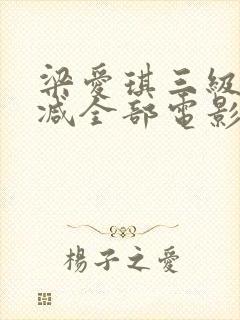 梁愛琪三級
減全部電影
楊子之愛